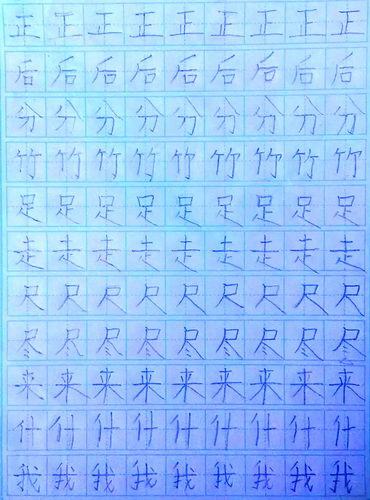 正 正 正 正 正 正 正 正 正
后 后 后 后 后 后 后 后 后
分 分 分 分 分 分 分 分 分
竹 竹 竹 竹 竹 竹 竹 竹 竹
足 足 足 足 足 足 足 足 足
走 走 走 走 走 走 走 走 走
尺 尺 尺 尺 尺 尺 尺 尺 尺
尽 尽 尽 尽 尽 尽 尽 尽 尽
来 来 来 来 来 来 来 来 来
什 什 什 什 什 什 什 什 什
我 我 我 我 我 我 我 我 我